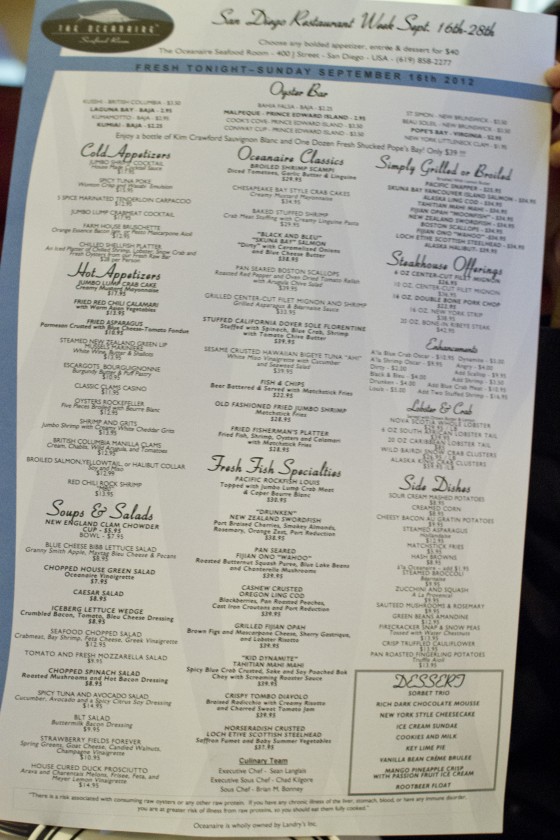 THE OCEANAIRE
Seafood Room
San Diego Restaurant Week Sept. 16th-28th
Choose any bolded appetizer, entrée & dessert for $40
The Oceanaire Seafood Room - 400 J Street - San Diego - USA - (619) 858-2277
FRESH TONIGHT~SUNDAY SEPTEMBER 16th 2012
Oyster Bar
KUSSHI - BRITISH COLUMBIA - $3.50
LAGUNA BAY - BAJA - 2.95
KUMAMOTO - BAJA - $2.95
KUMIAI - BAJA - $2.25
BAHIA FALSA - BAJA - $2.25
MALPEQUE - PRINCE EDWARD ISLAND - 2.95
COOK'S COVE - PRINCE EDWARD ISLAND - $2.50
CONWAY CUP - PRINCE EDWARD ISLAND - $2.50
ST SIMON - NEW BRUNSWICK - $3.50
BEAU SOLEIL - NEW BRUNSWICK - $3.50
POPE'S BAY - VIRGINIA - $2.95
NEW YORK LITTLENECK CLAM - $1.95
Enjoy a bottle of Kim Crawford Sauvignon Blanc and One Dozen Fresh Shucked Pope's Bay! Only $39 !!!
Cold Appetizers
JUMBO SHRIMP COCKTAIL
SPICY TUNA POKE
Wonton Crisp and Wasabi Emulsion
5 SPICE MARINATED TENDERLOIN CARPACCIO
JUMBO LUMP CRABMEAT COCKTAIL
FARM HOUSE BRUSCHETTE
CHILLED SHELLFISH PLATTER
An Iced Platter of Chilled Shrimp, Lobster, Snow Crab and
Fresh Oysters from our Fresh Raw Bar
Hot Appetizers
JUMBO LUMP CRAB CAKE
Creamy Mustard Mayonnaise
$17.95
FRIED RED CHILI CALAMARI
with Warm Asian Vegetables
$13.95
FRIED ASPARAGUS
Parmesan Crusted with Blue Cheese-Tomato Fondue
STEAMED NEW ZEALAND GREEN LIP
MUSSELS MARINIERE
White Wine, Butter & Shallots
ESCARGOTS BOURGUIGNONNE
Burgundy Butter & Puff Pastry
CLASSIC CLAMS CASINO
OYSTERS ROCKEFELLER
SHRIMP AND GRITS
Jumbo Shrimp with Creamy White Cheddar Grits
BRITISH COLUMBIA MANILLA CLAMS
BROILED SALMON,YELLOWTAIL, or HALIBUT COLLAR
Soy and Miso
$12.95
RED CHILI ROCK SHRIMP
$13.95
Soups & Salads
NEW ENGLAND CLAM CHOWDER
CUP - $5.95
BOWL - $7.95
BLUE CHEESE BIBB LETTUCE SALAD
Granny Smith Apple, Maytag Bleu Cheese & Pecans
$8.95
CHOPPED HOUSE GREEN SALAD
Oceanaire Vinaigrette
$7.95
CAESAR SALAD
$8.95
ICEBERG LETTUCE WEDGE
Crumbled Bacon, Tomato, Bleu Cheese Dressing
$8.95
SEAFOOD CHOPPED SALAD
Crabmeat, Bay Shrimp, Feta Cheese, Greek Vinaigrette
$12.95
TOMATO AND FRESH MOZZARELLA SALAD
$9.95
CHOPPED SPINACH SALAD
Roasted Mushrooms and Hot Bacon Dressing
$8.95
SPICY TUNA AND AVOCADO SALAD
Cucumber, Avocado and a Spicy Citrus Soy Dressing
$14.95
BLT SALAD
Buttermilk Bacon Dressing
$9.95
STRAWBERRY FIELDS FOREVER
Spring Greens, Goat Cheese, Candied Walnuts,
Champagne Vinaigrette
$10.95
HOUSE CURED DUCK PROSCIUTTO
Arava and Charentais Melons, Frisee, Feta, and
Meyer Lemon Vinaigrette
$14.95
Oceanaire Classics
BROILED SHRIMP SCAMPI
Diced Tomatoes, Garlic Butter & Linguine
$29.95
CHESAPEAKE BAY STYLE CRAB CAKES
Creamy Mustard Mayonnaise
$34.95
BAKED STUFFED SHRIMP
Crab Meat Stuffing with Creamy Linguine Pasta
$29.95
"BLACK AND BLEU"
"SKUNA BAY" SALMON
"Dirty" with Caramelized Onions
and Blue Cheese Butter
$38.95
PAN SEARED BOSTON SCALLOPS
Roasted Red Pepper and Oven Dried Tomato Relish
with Arugula Chive Salad
$39.95
GRILLED CENTER-CUT FILET MIGNON AND SHRIMP
Grilled Asparagus & Béarnaise Sauce
$33.95
STUFFED CALIFORNIA DOVER SOLE FLORENTINE
Stuffed with Spinach, Blue Crab, Shrimp
with Tomato Chive Butter
$39.95
SESAME CRUSTED HAWAIIAN BIGEYE TUNA "AHI"
White Miso Vinaigrette with Cucumber
and Seaweed Salad
$39.95
FISH & CHIPS
Beer Battered & Served with Matchstick Fries
$22.95
OLD FASHIONED FRIED JUMBO SHRIMP
Matchstick Fries
$28.95
FRIED FISHERMAN'S PLATTER
Fried Fish, Shrimp, Oysters and Calamari
with Matchstick Fries
$28.95
Fresh Fish Specialties
PACIFIC ROCKFISH LOUIS
Topped with Jumbo Lump Crab Meat
& Caper Beurre Blanc
$30.95
"DRUNKEN"
NEW ZEALAND SWORDFISH
Port Braised Cherries, Smokey Almonds,
Rosemary, Orange Zest, Port Reduction
$38.95
PAN SEARED
FIJIAN ONO "WAHOO"
Roasted Butternut Squash Puree, Blue Lake Beans
and Chanterelle Mushrooms
$39.95
CASHEW CRUSTED
OREGON LING COD
Blackberries, Pan Roasted Peaches,
Cast Iron Croutons and Pan Reduction
$39.95
GRILLED FIJIAN OPAH
Brown Figs and Mascarpone Cheese, Sherry Gastrique,
and Lobster Risotto
$39.95
"KID DYNAMITE"
TAHITIAN MAHI MAHI
Spicy Blue Crab Crusted, Sake and Soy Poached Bok
Choy with Screaming Rooster Sauce
$39.95
CRISPY TOMBO DIAVOLO
Braised Radicchio with Creamy Risotto
and Charred Sweet Tomato Jam
$39.95
HORSERADISH CRUSTED
LOCH ETIVE SCOTTISH STEELHEAD
Saffron Fumet and Baby Summer Vegetables
$37.95
Culinary Team
Executive Chef - Sean Langlais
Executive Sous Chef - Chad Kilgore
Sous Chef - Brian M. Bonney
Simply Grilled or Broiled
PACIFIC SNAPPER - $25.95
SKUNA BAY VANCOUVER ISLAND SALMON - $34.95
ALASKA LING COD - $34.95
TAHITIAN MAHI MAHI - $34.95
FIJIAN OPAH "MOONFISH" - $34.95
NEW ZEALAND SWORDFISH - $34.95
BOSTON SCALLOPS - $34.95
FIJIAN ONO "WAHOO" - $34.95
LOCH ETIVE SCOTTISH STEELHEAD - $34.95
ALASKA HALIBUT - $39.95
Steakhouse Offerings
6 OZ CENTER-CUT FILET MIGNON
$26.95
10 OZ. CENTER-CUT FILET MIGNON
$36.95
16 OZ. DOUBLE BONE PORK CHOP
$22.95
16 OZ. NEW YORK STRIP
$38.95
20 OZ. BONE-IN RIBEYE STEAK
$42.95
Enhancements
A'la Blue Crab Oscar - $10.95
A'la Shrimp Oscar - $9.95
Dirty - $2.00
Black & Bleu - $4.00
Drunken - $4.00
Louis - $5.00
Dynamite - $2.00
Angry - $4.00
Add Scallop - $9.95
Add Shrimp - $3.50
Add Blue Crab Meat - $10.95
Add Two Stuffed Shrimp - $16.95
Lobster & Crab
NOVA SCOTIA WHOLE LOBSTER
20 OZ CARIBBEAN LOBSTER TAIL
WILD BAIRDI SNOW CRAB CLUSTERS
Side Dishes
SOUR CREAM MASHED POTATOES
$8.95
CREAMED CORN
$8.95
CHEESY BACON AU GRATIN POTATOES
$9.95
STEAMED ASPARAGUS
Hollandaise
MATCHSTICK FRIES
$5.95
HASH BROWNS
$8.95
A'la Oceanaire - add $1.95
STEAMED BROCCOLI
Béarnaise
$9.95
ZUCCHINI AND SQUASH
A La Provencal
$9.95
SAUTEED MUSHROOMS & ROSEMARY
$9.95
GREEN BEANS AMANDINE
$12.95
FIRECRACKER SNAP & SNOW PEAS
Tossed with Water Chestnut
$13.95
CRISP TRUFFLED CAULIFLOWER
$13.95
PAN ROASTED FINGERLING POTATOES
Truffle Aioli
$13.95
DESSERT
SORBET TRIO
RICH DARK CHOCOLATE MOUSSE
NEW YORK STYLE CHEESECAKE
ICE CREAM SUNDAE
COOKIES AND MILK
KEY LIME PIE
VANILLA BEAN CRÈME BRULEE
MANGO PINEAPPLE CRISP
WITH PASSION FRUIT ICE CREAM
ROOTBEER FLOAT
"There is a risk associated with consuming raw oysters or any other raw protein. If you have any chronic illness of the liver, stomach, blood, or have any immune disorder,
you are at greater risk of illness from raw proteins, so you should eat them fully cooked."
Oceanaire is wholly owned by Landry's Inc.